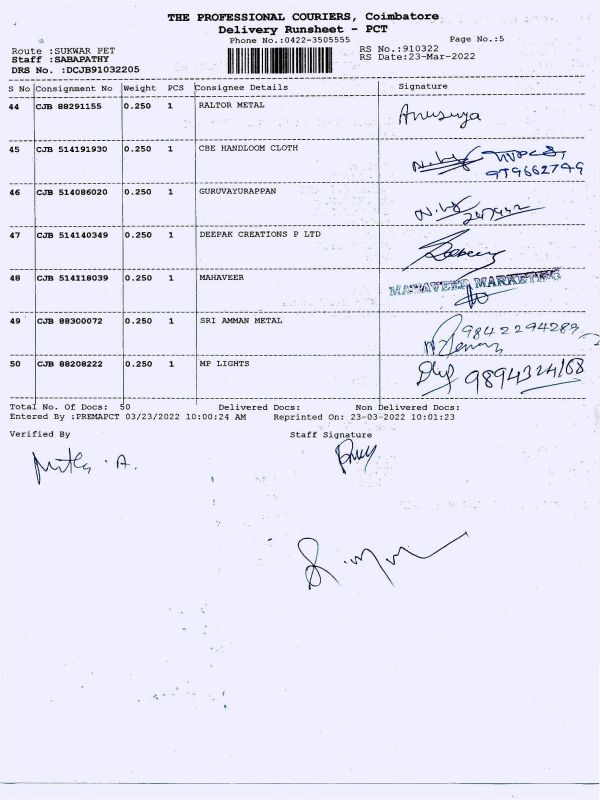 THE PROFESSIONAL COURIERS, Coimbatore
Delivery Runsheet - PCT
Phone No.:0422-3505555 Page No.:5
Route :SUKWAR PET RS No.:910322
Staff :SABAPATHY RS Date:23-Mar-2022
DRS No. :DCJB91032205
S No Consignment No Weight PCS Consignee Details Signature
44 CJB 88291155 0.250 1 RALTOR METAL Anusuya
45 CJB 514191930 0.250 1 CBE HANDLOOM CLOTH
46 CJB 514086020 0.250 1 GURUVAYURAPPAN
47 CJB 514140349 0.250 1 DEEPAK CREATIONS P LTD
48 CJB 514118039 0.250 1 MAHAVEER MAHAVEER MARKETING
49 CJB 88300072 0.250 1 SRI AMMAN METAL 9842294289
50 CJB 88208222 0.250 1 MP LIGHTS 9894324168
Total No. Of Docs: 50 Delivered Docs: Non Delivered Docs:
Entered By :PREMAPCT 03/23/2022 10:00:24 AM Reprinted On: 23-03-2022 10:01:23
Verified By Staff Signature